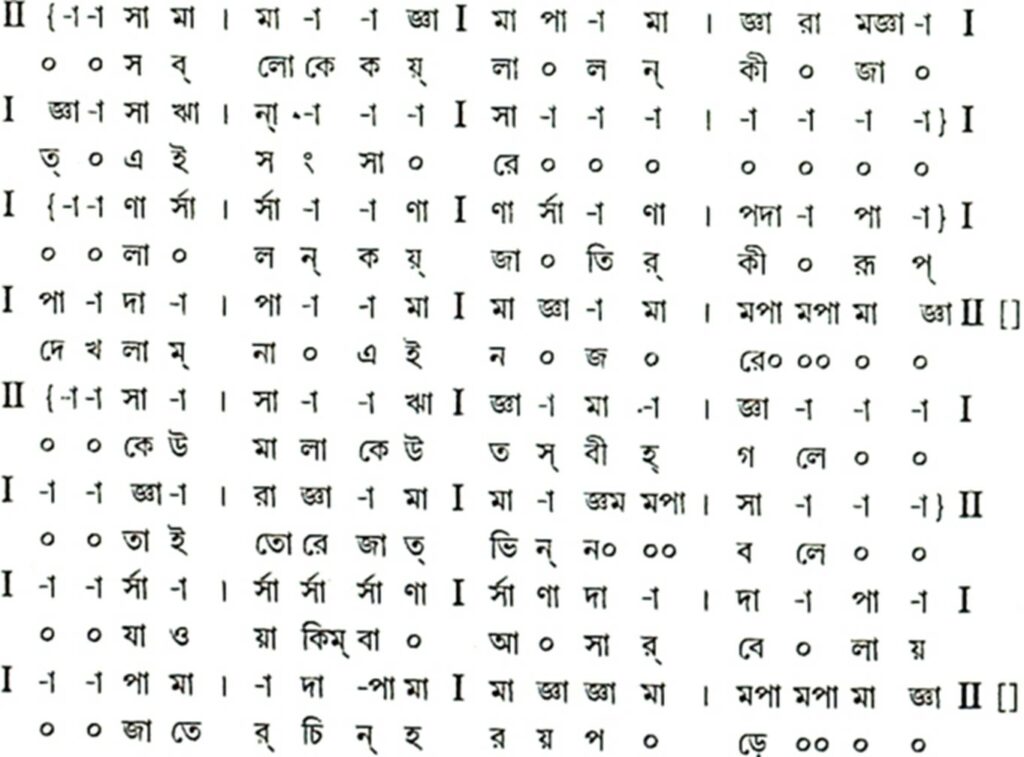 II {-া -া সা মা । মা -া -া জ্ঞা I মা পা -া মা । জ্ঞা রা মজ্ঞা -া I
০ ০ স ব্ লো কে ক য়্ লা ০ ল ন্ কী ০ জা ০
I জ্ঞা -া সা ঋা । ন্া -া -া -া I সা -া -া -া । -া -া -া -া} I
ত্ ০ এ ই স ং সা ০ রে ০ ০ ০ ০ ০ ০ ০
I {-া -া ণা র্সা । র্সা -া -া ণা I ণা র্সা -া ণা । পদা -া পা -া} I
০ ০ লা ০ ল ন্ ক য়্ জা ০ তি র্ কী ০ রূ প্
I পা -া দা -া । পা -া -া মা I মা জ্ঞা -া মা । মপা মপা মা জ্ঞা II []
দে খ লা ম্ না ০ এ ই ন ০ জ ০ রে০ ০০ ০ ০
II {-া -া সা -া । সা -া -া ঋা I জ্ঞা -া মা -া । জ্ঞা -া -া -া I
০ ০ কে উ মা লা কে উ ত স্ বী হ্ গ লে ০ ০
I -া -া জ্ঞা -া । রা জ্ঞা -া মা I মা -া জ্ঞম মপা । সা -া -া -া} II
০ ০ তা ই তো রে জা ত্ ভি ন্ ন০ ০০ ব লে ০ ০
I -া -া র্সা -া । র্সা র্সা র্সা ণা I র্সা ণা দা -া । দা -া পা -া I
০ ০ যা ও য়া কিম্ বা ০ আ ০ সা র্ বে ০ লা য়
I -া -া পা মা । -া দা -পা মা I মা জ্ঞা জ্ঞা মা । মপা মপা মা জ্ঞা II []
০ ০ জা তে র্ চি ন্ হ র য় প ০ ড়ে ০০ ০ ০